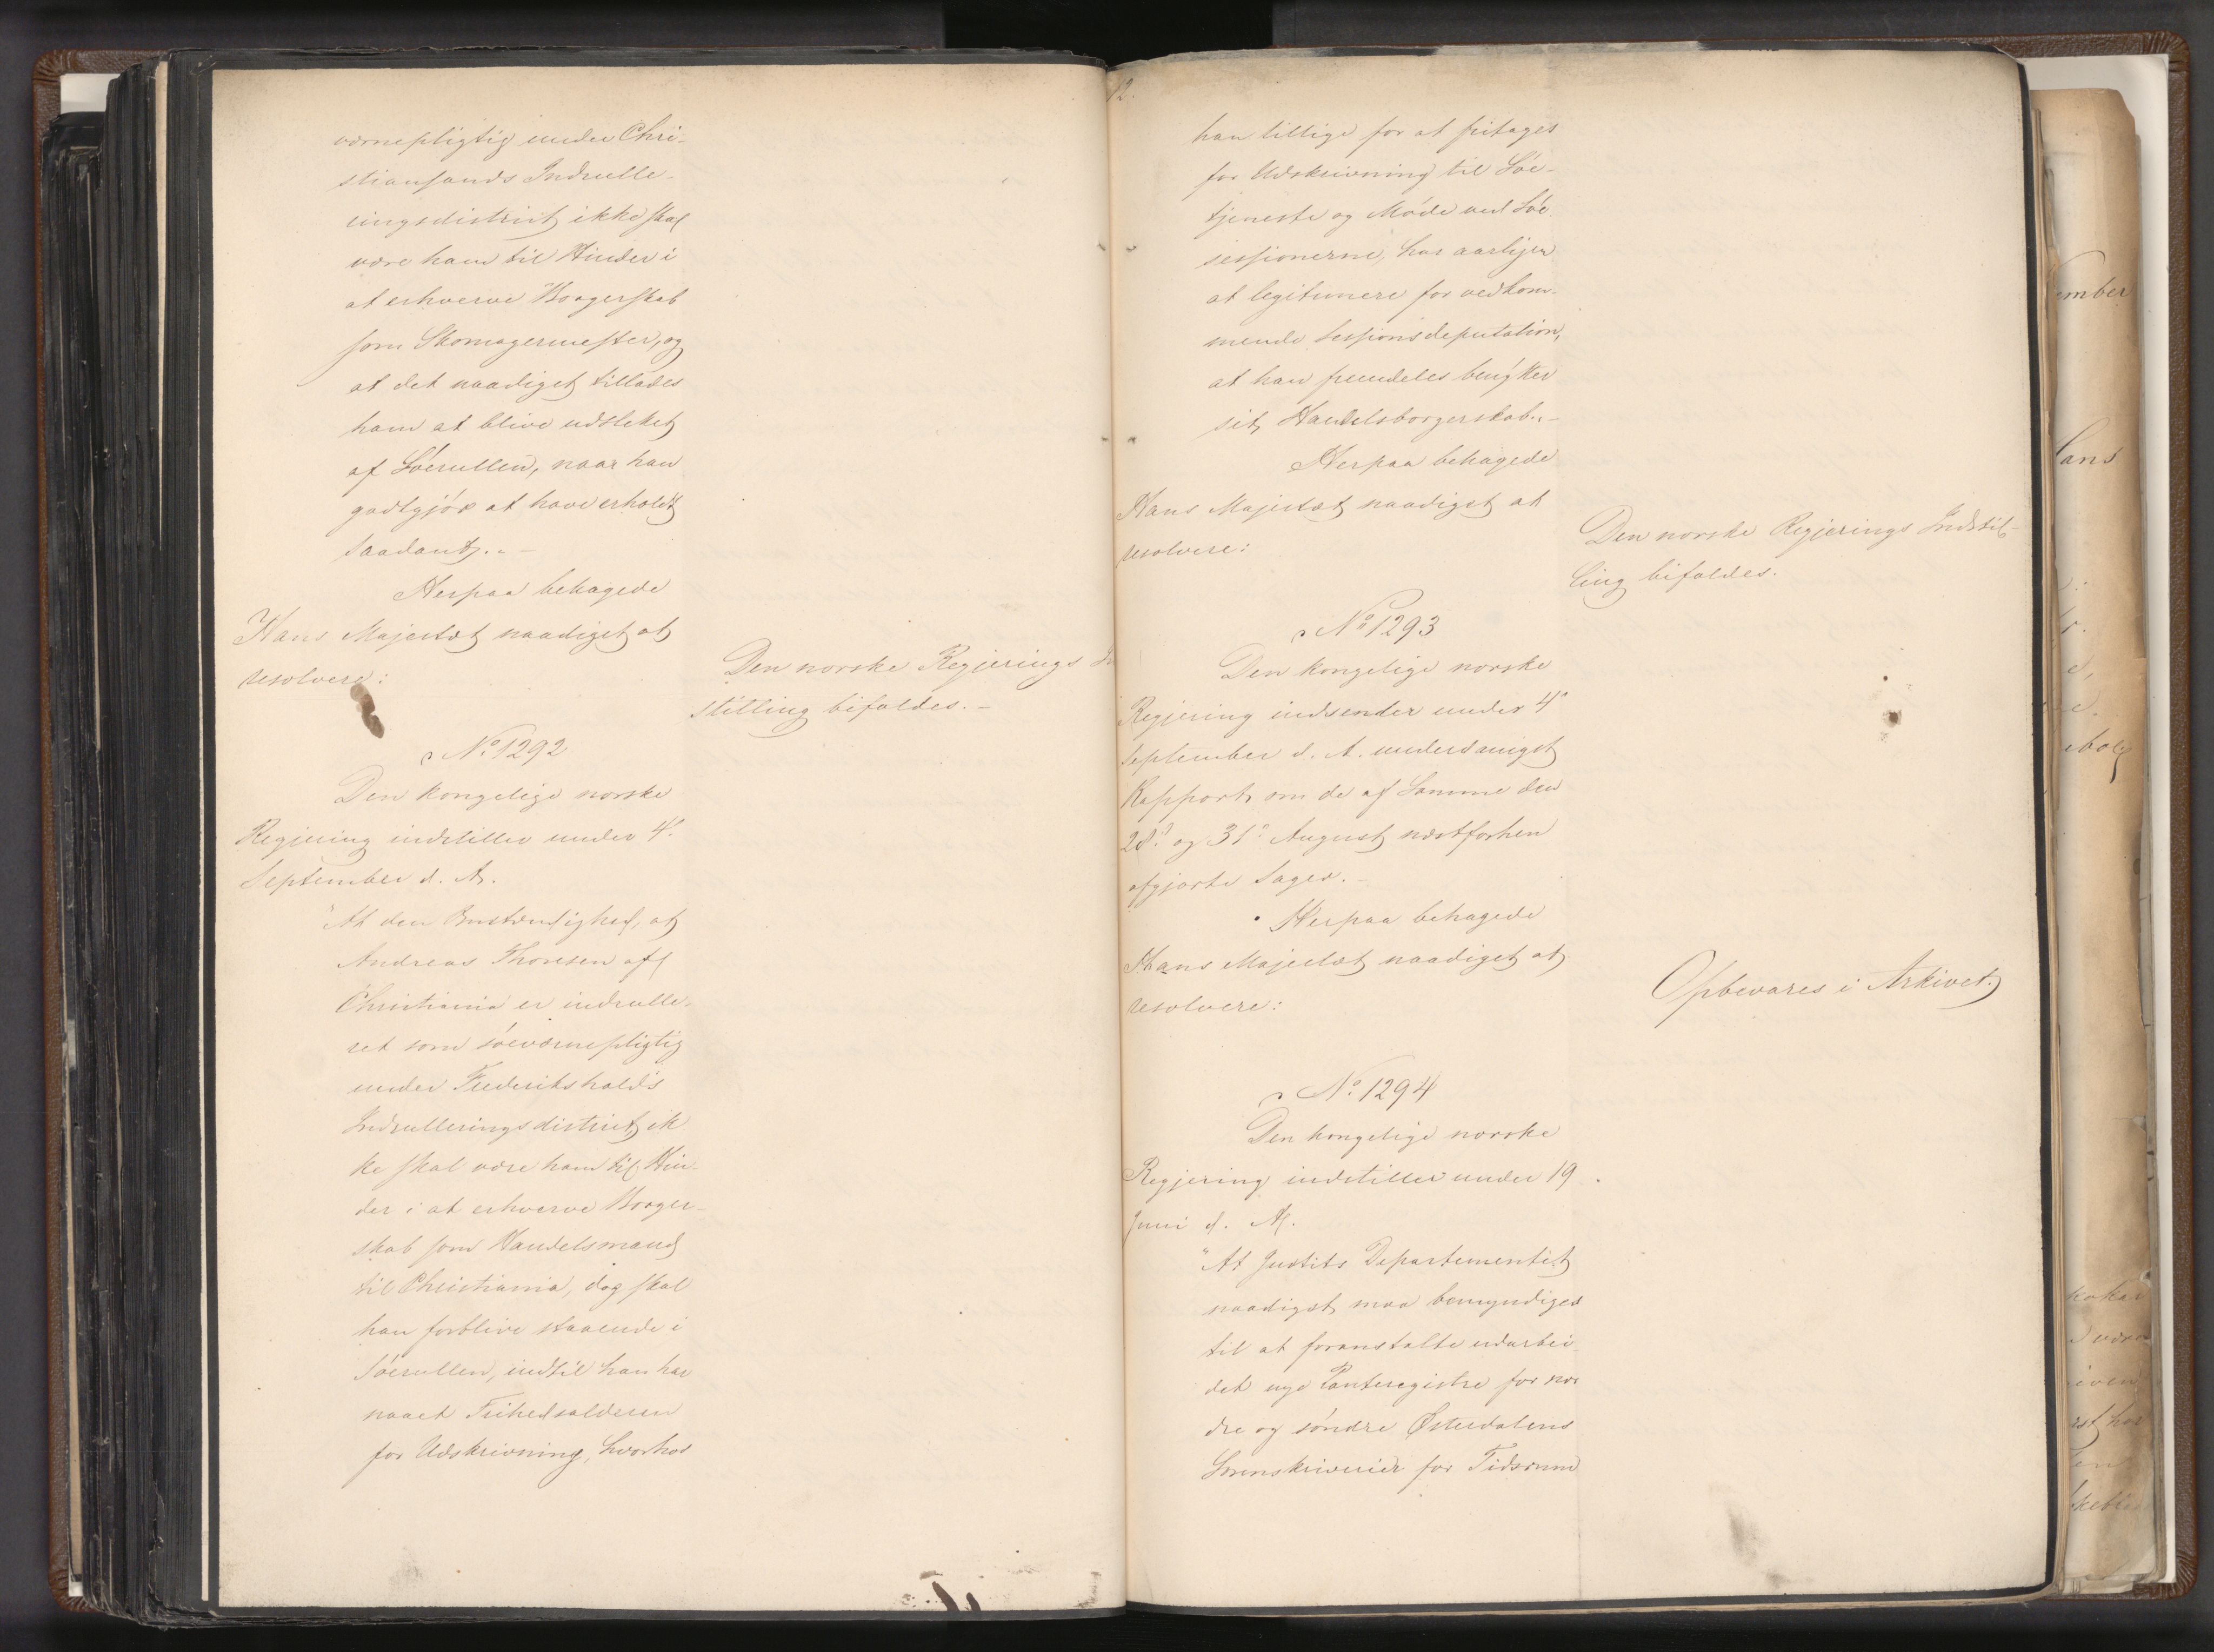 værnepligtig under Chri-
stiansands Indrulle-
ringsdistrict ikke skal
være ham til Hinder i
at erhverve Borgerskab
som Skomagermester, og
at det naadigst tillades
ham at blive udslettet
af Söerullen, naar han
godtgjör at have erholdt
saadant.. -
Herpaa behagede
Hans Majestæt naadigst at
resolvere:
Den norske Regjerings In
stilling bifaldes. -
No 1292
Den kongelige norske
Regjering indstiller under 4de
September d. A.
"At den Omstændighed, at
Andreas Thoresen af
Christiania er indrulle-
ret som söeværnepligtig
under Frederikshalds
Indrulleringsdistrict ik
ke skal være ham til Hin-
der i at erhverve Borger-
skab som Handelsmand
til Christiania, dog skal
han forblive staaende i
Söerullen, indtil han har
naaet Frihedsalderen
for Udskrivning, hvorhos
12.
han tillige for at fritages
for Udskrivning til Söe-
tjeneste og Möde ved Söe
sessionerne, har aarligen
at legitimere for vedkom-
mende Sessionsdeputation,
at han fremdeles benytter
sit Handelsborgerskab.. -
Herpaa behagede
Hans Majestæt naadigst at
resolvere:
Den norske Regjerings Indstil-
ling bifaldes.
No 1293
Den kongelige norske
Regjering indsender under 4de
September d. A. underdanigst
Rapport om de af Samme den
28de og 31te August næstforhen
afgjorte Sager. -
Herpaa behagede
Hans Majestæt naadigst at
resolvere:
Opbevares i Arkivet.
No 1294
Den kongelige norske
Regjering indstiller under 19
Juni d. A.
"At Justits Departementet
naadigst maa bemyndiges
til at foranstalte udarbei-
det nye Panteregistre for nor
dre og söndre Österdalens
Sorenskriverier for Tidsrum
ember
Hans